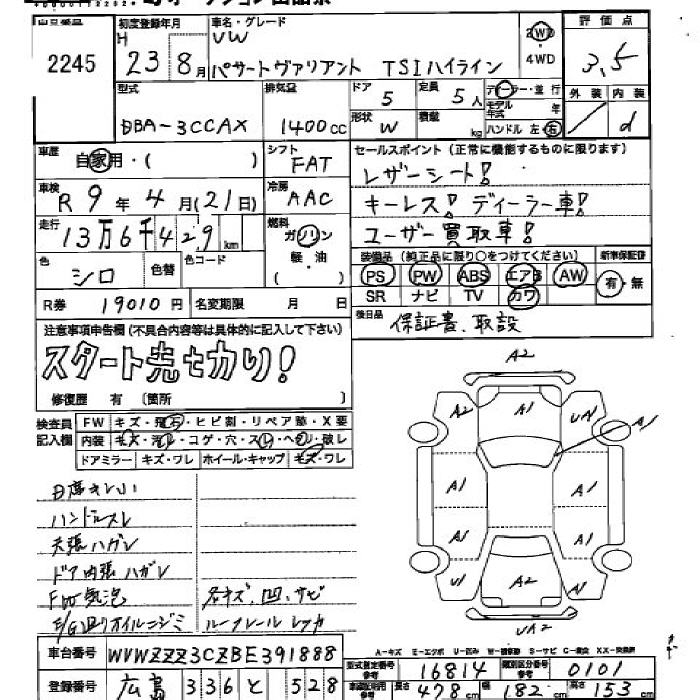 初度登録年月 車名・グレード 評価点
2245 H 23 8月 VW 2WD・4WD 3.5
パサートヴァリアント TSIハイライン
型式 排気量 ドア 定員 ディーラー・並行 外装 内装
DBA-3CCAX 1400cc 5 5人 モデル年式 年
形状 W 積載 kg ハンドル 左 右 / d
車歴 自家用・( ) シフト FAT セールスポイント (正常に機能するものに限ります)
レザーシート!
車検 R 9年 4月(21日) 冷房 AAC キーレス! ディーラー車!
走行 13万6千429km 燃料 ガソリン・軽・油 ユーザー買取車!
色 シロ 色替 色コード 装備品 (純正品に限り○をつけてください) 新車保証書
PS PW ABS エアB AW 有・無
SR ナビ TV カワ
R券 19010円 名変期限 月 日 後日品 保証書、取説
注意事項申告欄(不具合内容等は具体的に記入して下さい)
スタート先セカリ!
修復歴 有 〔箇所 〕
検査員記入欄 FW キズ・飛石・ヒビ割・リペア跡・X要
内装 キズ・汚レ・コゲ・穴・スレ・ヘタリ・破レ
ドアミラー キズ・ワレ ホイール・キャップ キズ・ワレ
ハンドルスレ
天張ハガレ
ドア内張ハガレ
FW気泡 小キズ、凹、サビ
E/G回りオイルニジミ
A2
A2 A1 UA1 A1
A1 A1
A1 A1
U1 A2 A1
UA2
A-キズ E-エクボ U-凹み W-補修跡 S-サビ C-腐食 XX-交換済
車台番号 WVWZZZ3CZBE391888 型式指定番号 16814 類別区分番号 0101
登録番号 広島 336 と 528 長さ 478cm 幅 182cm 高さ 153cm